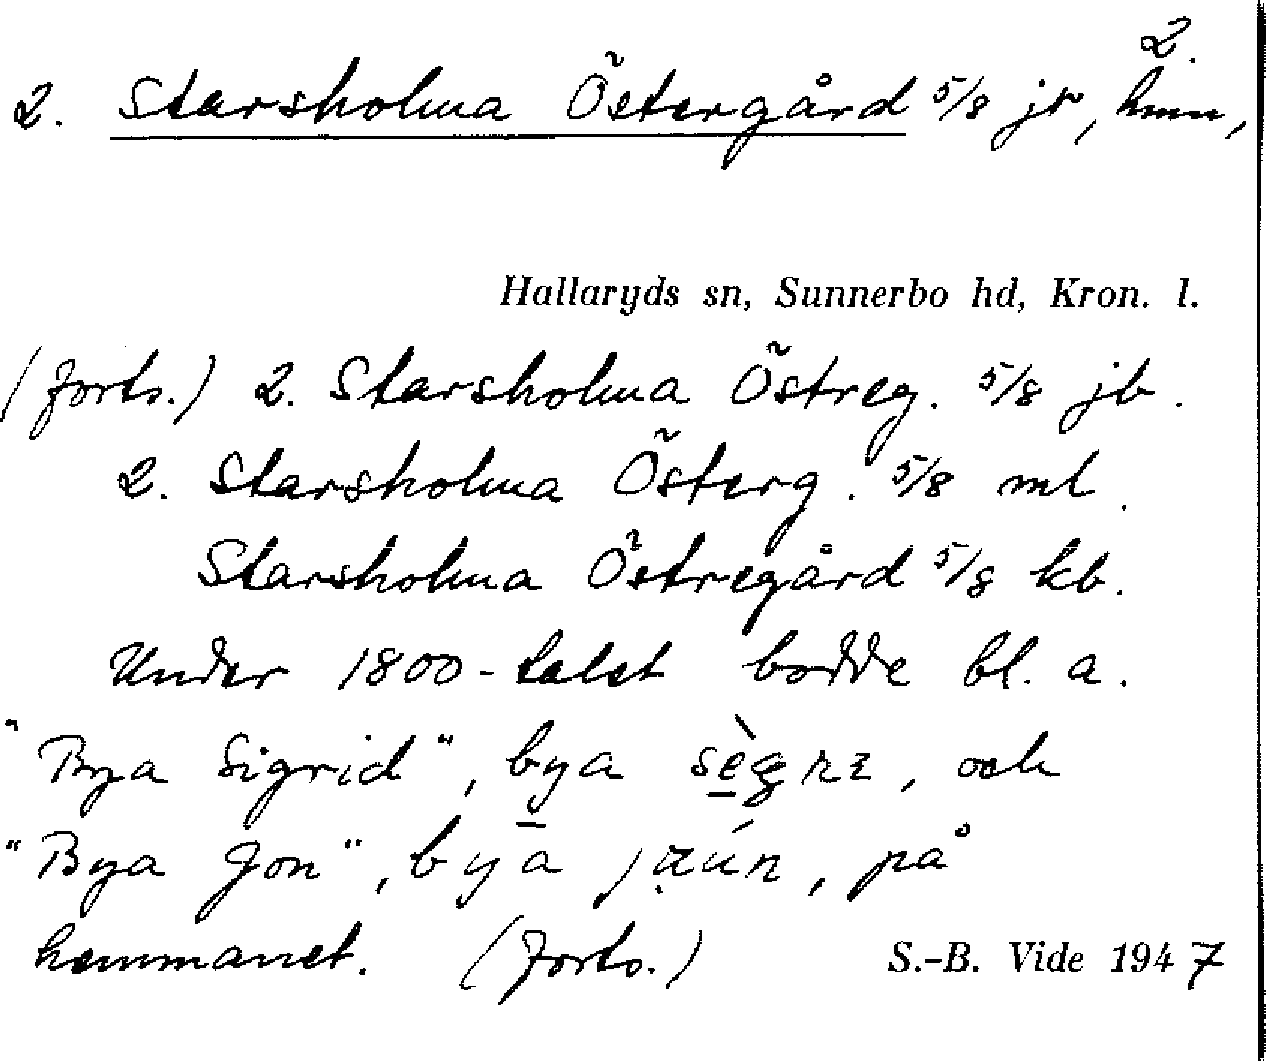 2.
2. Starsholma Östergård 5/8 jr, hmn,
Hallaryds sn, Sunnerbo hd, Kron. l.
(forts.) 2. Starsholma Östreg. 5/8 jb.
2. Starsholma Österg. 5/8 ml.
Starsholma Östregård 5/8 kb.
Under 1800-talet bodde bl. a.
"Bya Sigrid", bya , och
"Bya Jon", bya , på
hemmanet. (forts.) S.-B. Vide 1947